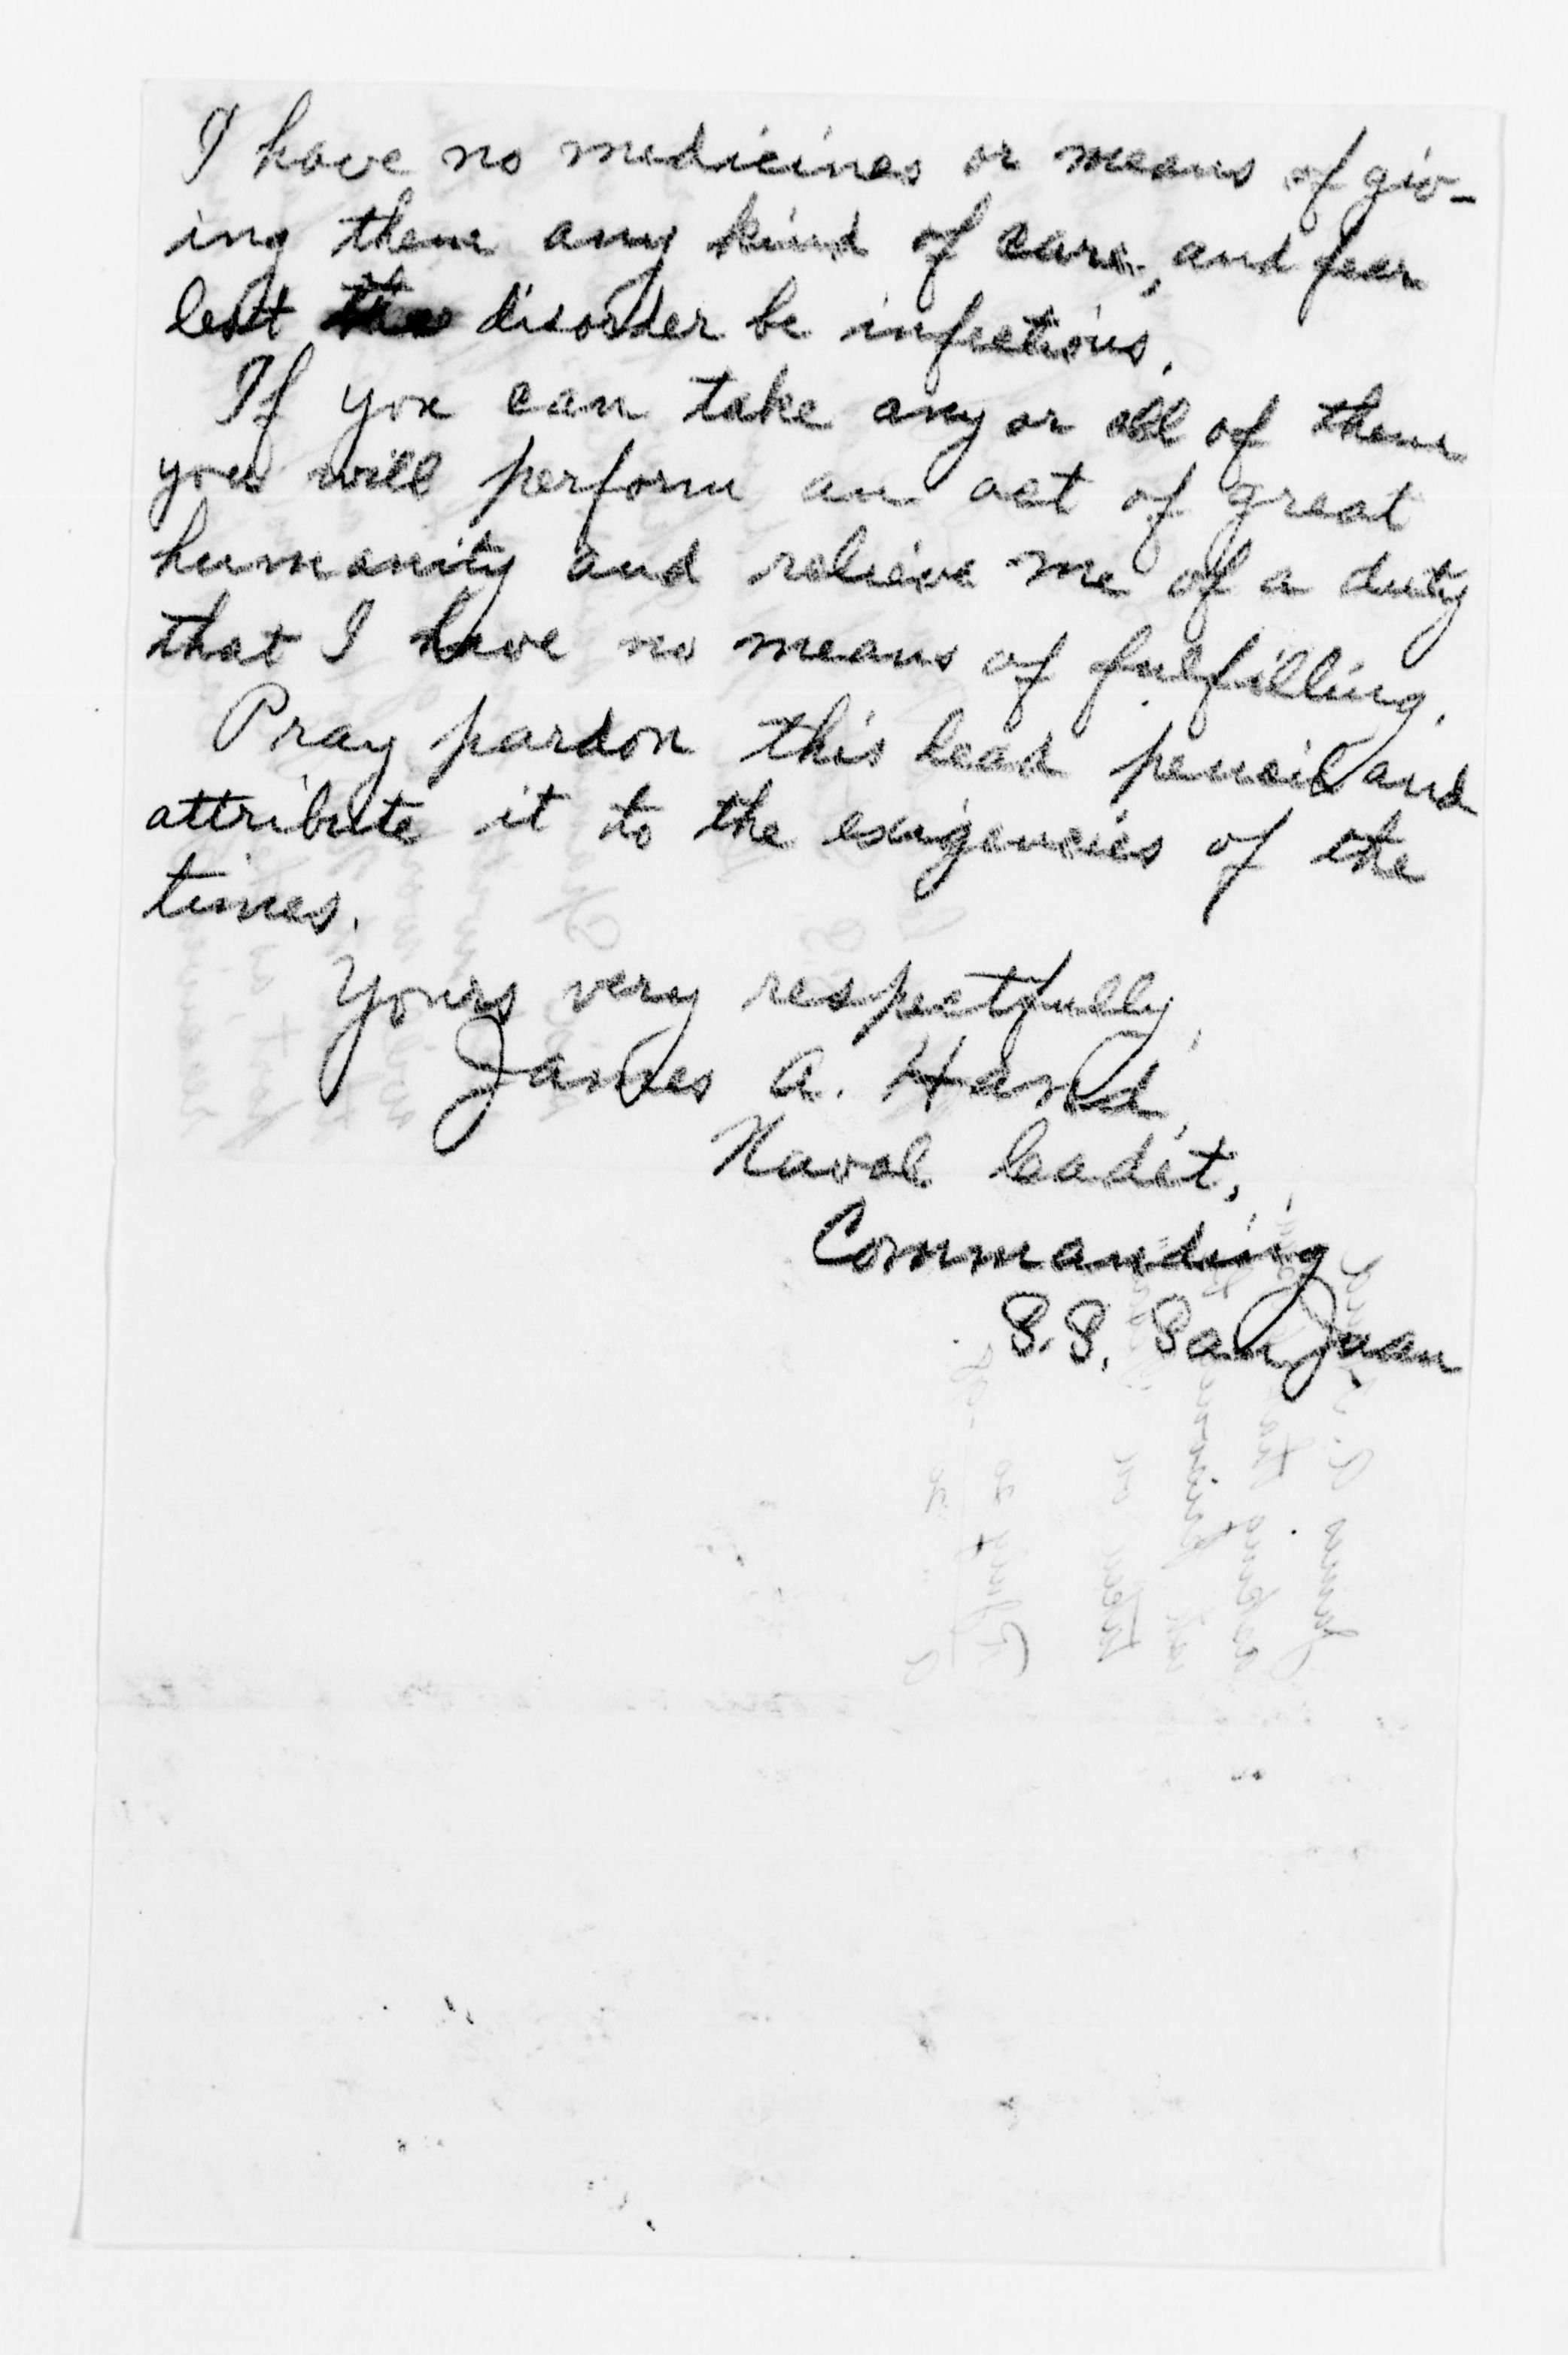 I have no medicines or means of giv-
ing them any kind of care, and fear
lest the disorder be infectious.
If you can take any or all of them
you will perform an act of great
humanity and relieve me of a duty
that I have no means of fulfilling.
Pray pardon this lead pencil and
attribute it to the exigencies of the
times.
Yours very respectfully,
James A. Hand,
Naval Cadet,
Commanding
S.S. San Juan